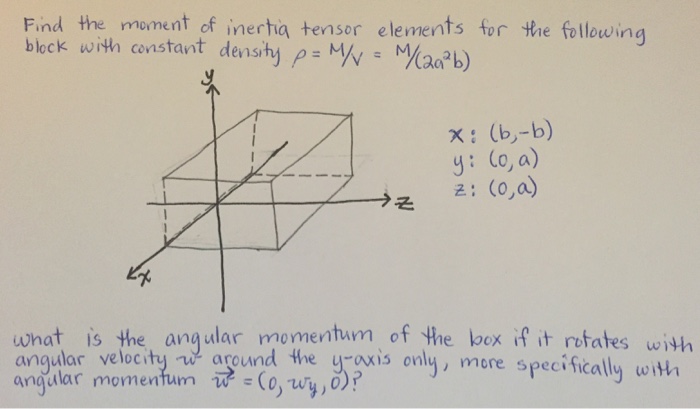 Find the moment of inertia tensor elements for the following
block with constant density ρ = M/V = M/(2a²b)
y
x: (b,-b)
y: (0,a)
z: (0,a)
z
x
what is the angular momentum of the box if it rotates with
angular velocity w around the y-axis only, more specifically with
angular momentum w⃗ = (0, wy, 0)?